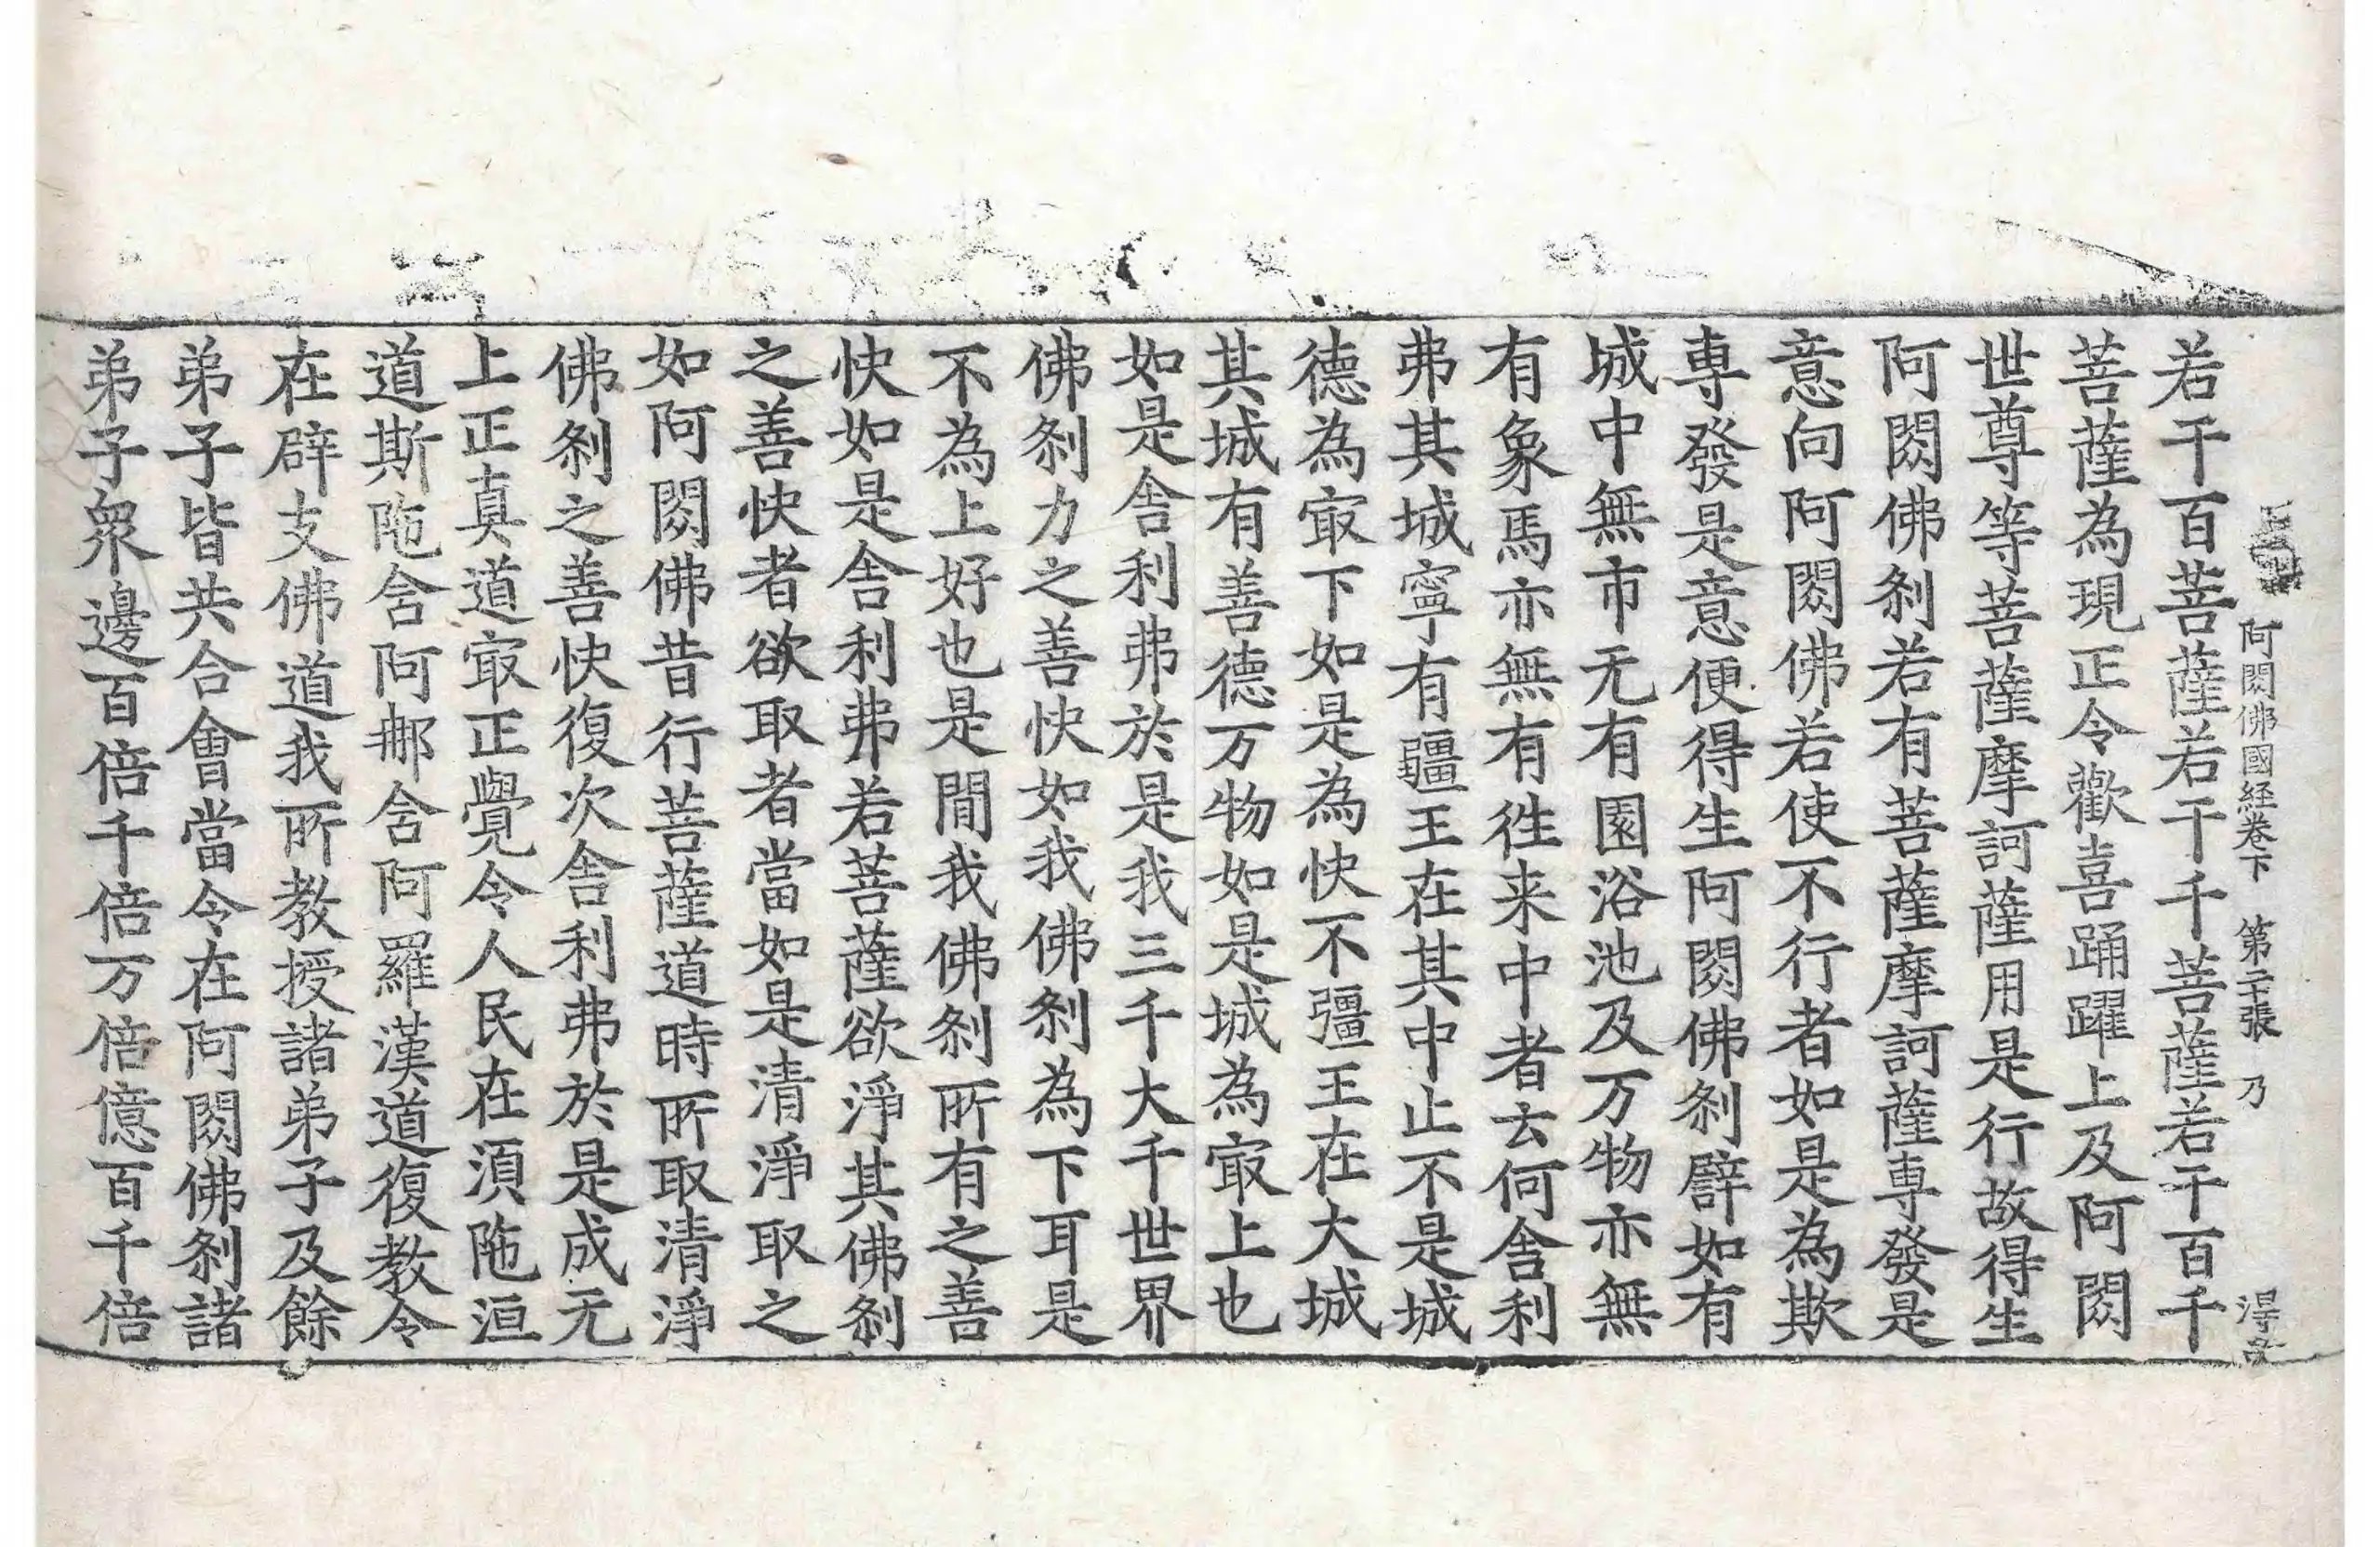 阿閦佛國経卷下 第二十張 乃
若干百菩薩若干千菩薩若干百千
菩薩為現正令歡喜踊躍上及阿閦
世尊等菩薩摩訶薩用是行故得生
阿閦佛刹若有菩薩摩訶薩専發是
意向阿閦佛若使不行者如是為欺
専發是意便得生阿閦佛刹譬如有
城中無市无有園浴池及万物亦無
有象馬亦無有徃来中者云何舍利
弗其城寧有疆王在其中止不是城
德為㝡下如是為快不彊王在大城
其城有善德万物如是城為㝡上也
如是舍利弗於是我三千大千世界
佛刹力之善快如我佛刹為下耳是
不為上好也是間我佛刹所有之善
快如是舍利弗若菩薩欲淨其佛刹
之善快者欲取者當如是清淨取之
如阿閦佛昔行菩薩道時所取清淨
佛刹之善快復次舍利弗於是成无
上正真道㝡正覺令人民在須陁洹
道斯陁含阿那含阿羅漢道復教令
在辟支佛道我所教授諸弟子及餘
弟子皆共合會當令在阿閦佛刹諸
弟子衆邊百倍千倍万倍億百千倍